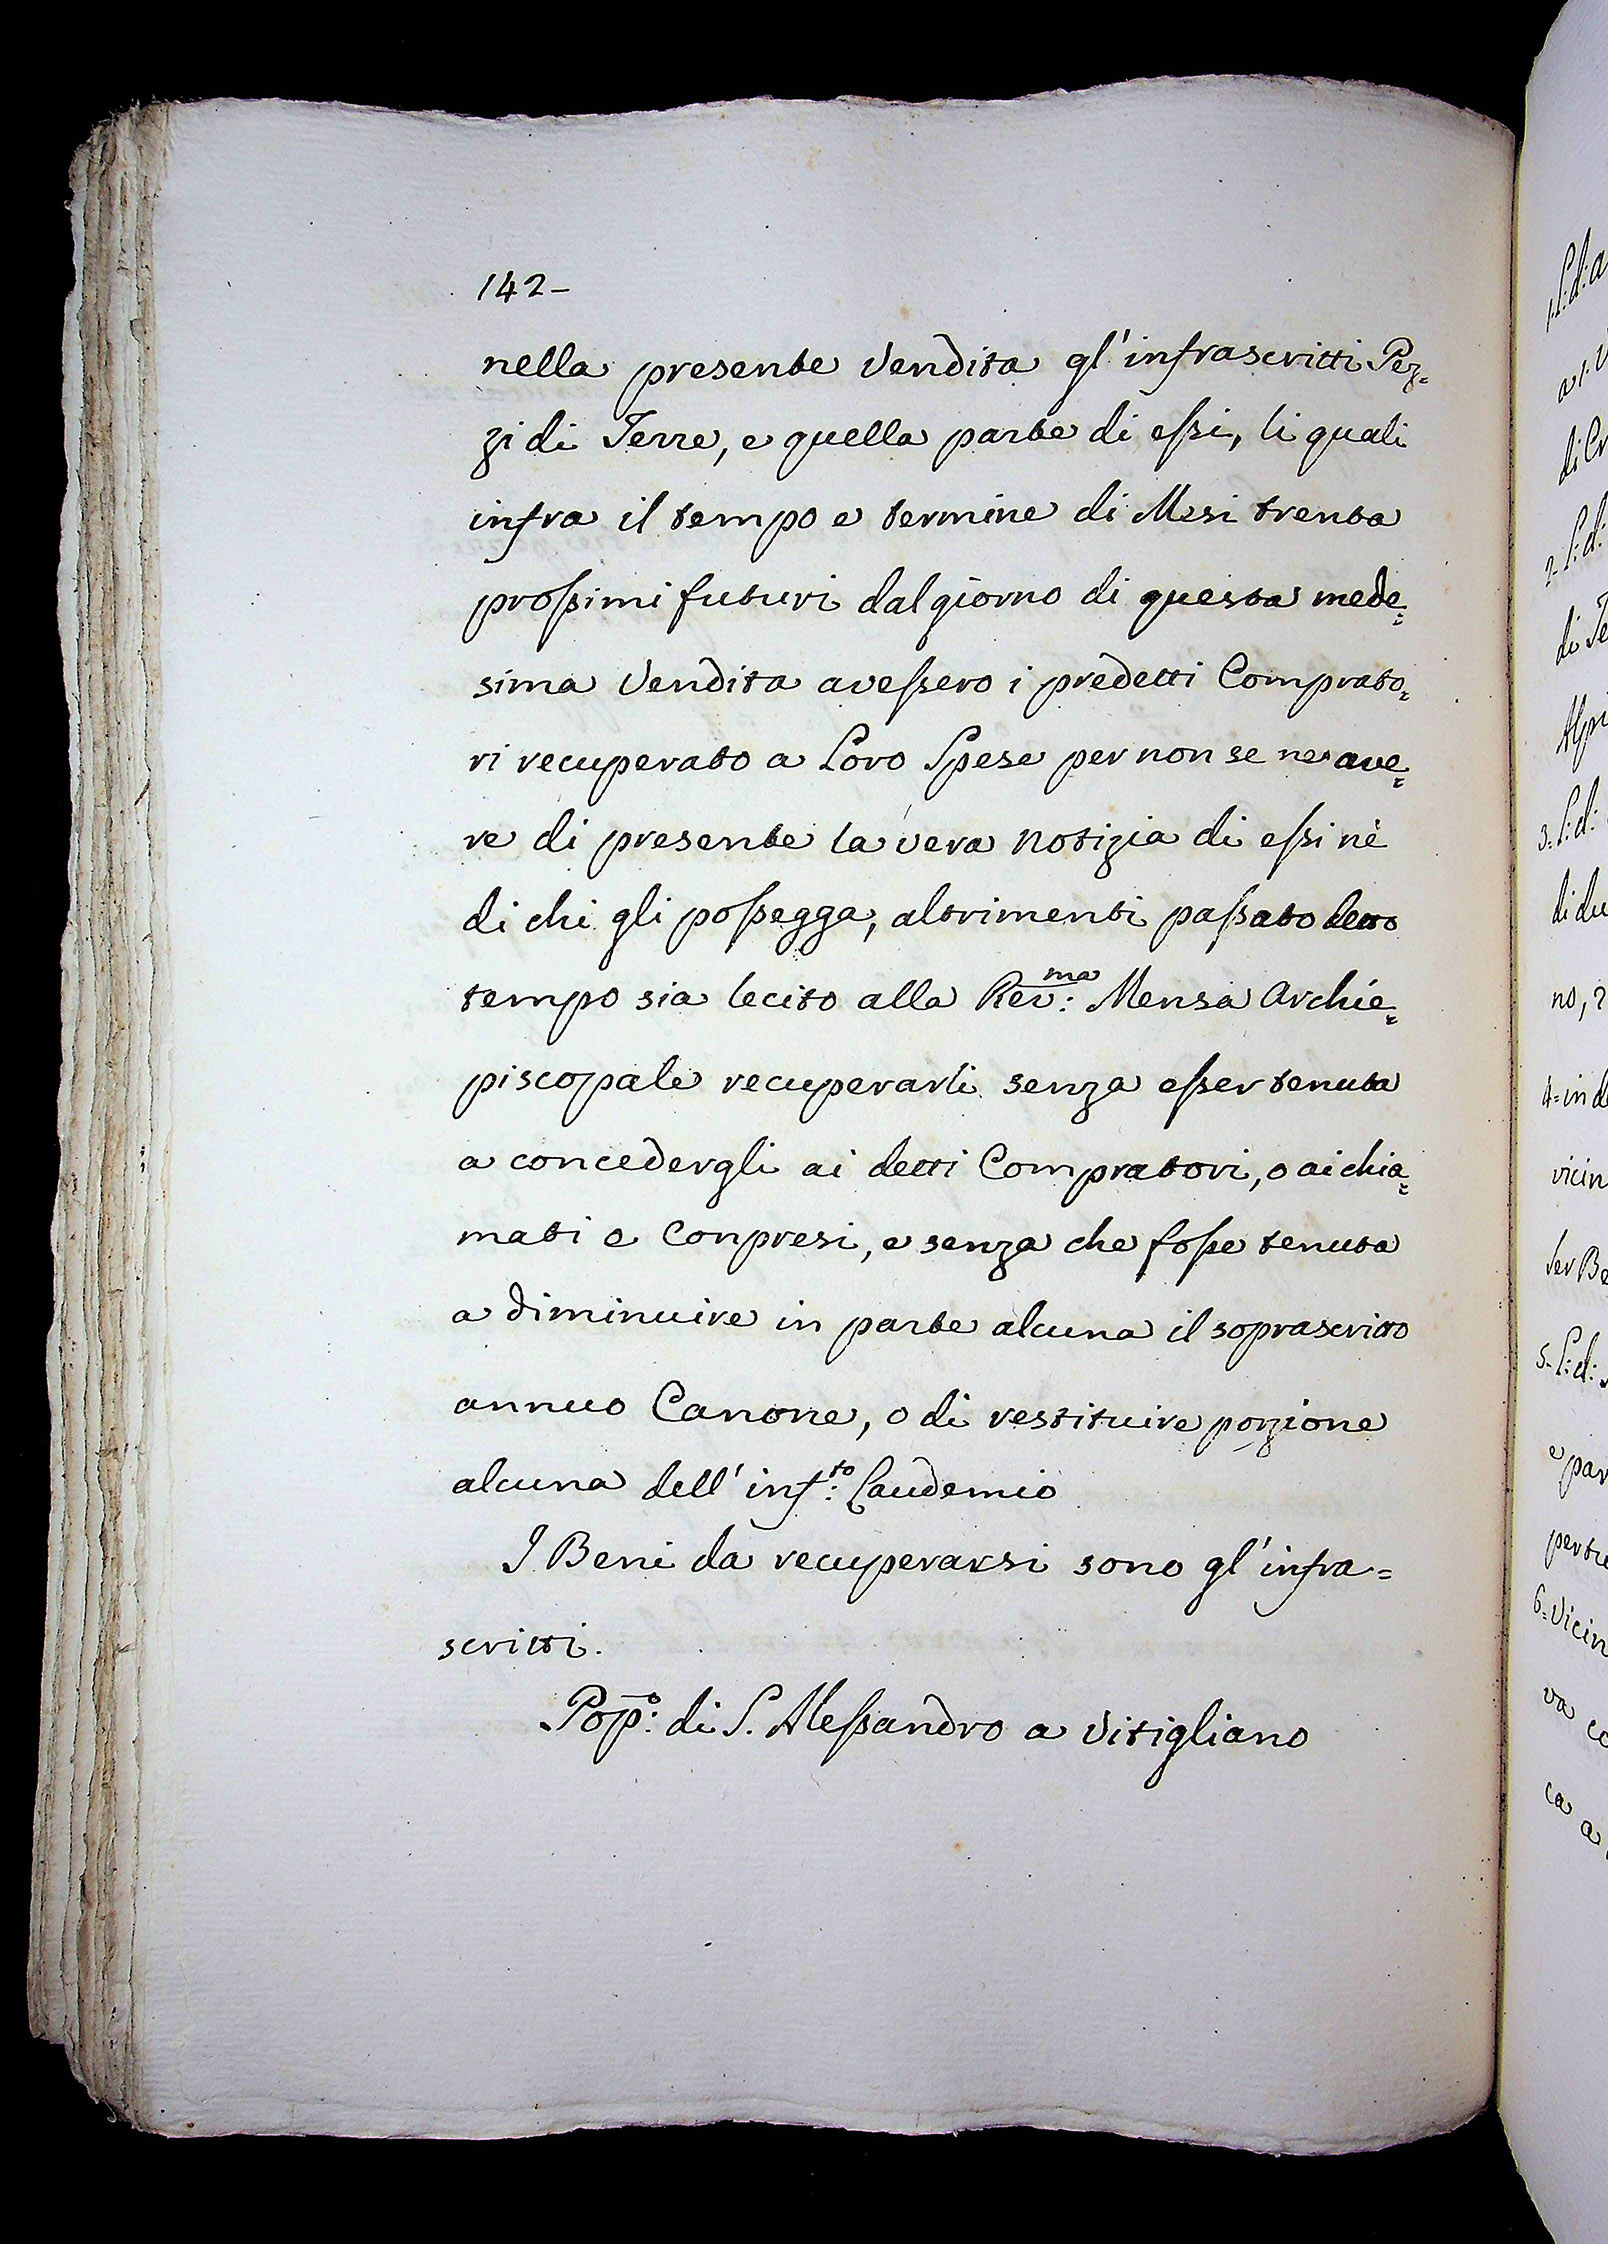 142-
nella presente Vendita gl'infrascritti Pez=
zi di Terre, e quella parte di essi, li quali
infra il tempo e termine di Mesi trenta
prossimi futuri dal giorno di questa mede=
sima Vendita avessero i predetti Comprato=
ri recuperato a Loro Spese per non se ne ave=
re di presente la vera notizia di essi nè
di chi gli possegga, altrimenti passato detto
tempo sia lecito alla Rev:ma Mensa Archie=
piscopale recuperarli senza esser tenuta
a concedergli ai detti Compratori, o ai chia=
mati e Conpresi, e senza che fosse tenuta
a diminuire in parte alcuna il soprascritto
annuo Canone, o di restituire porzione
alcuna dell'inf:to Laudemio
I Beni da recuperarsi sono gl'infra=
scritti.
Pop:o di S. Alessandro a Vitigliano
di Cr
2- L: d:
di Te
Alpi
3= L: d:
di du
no, 2
4= in d
vicin
Ser Be
5- L: d:
e par
per tre
6= Vicin
va co
ca a